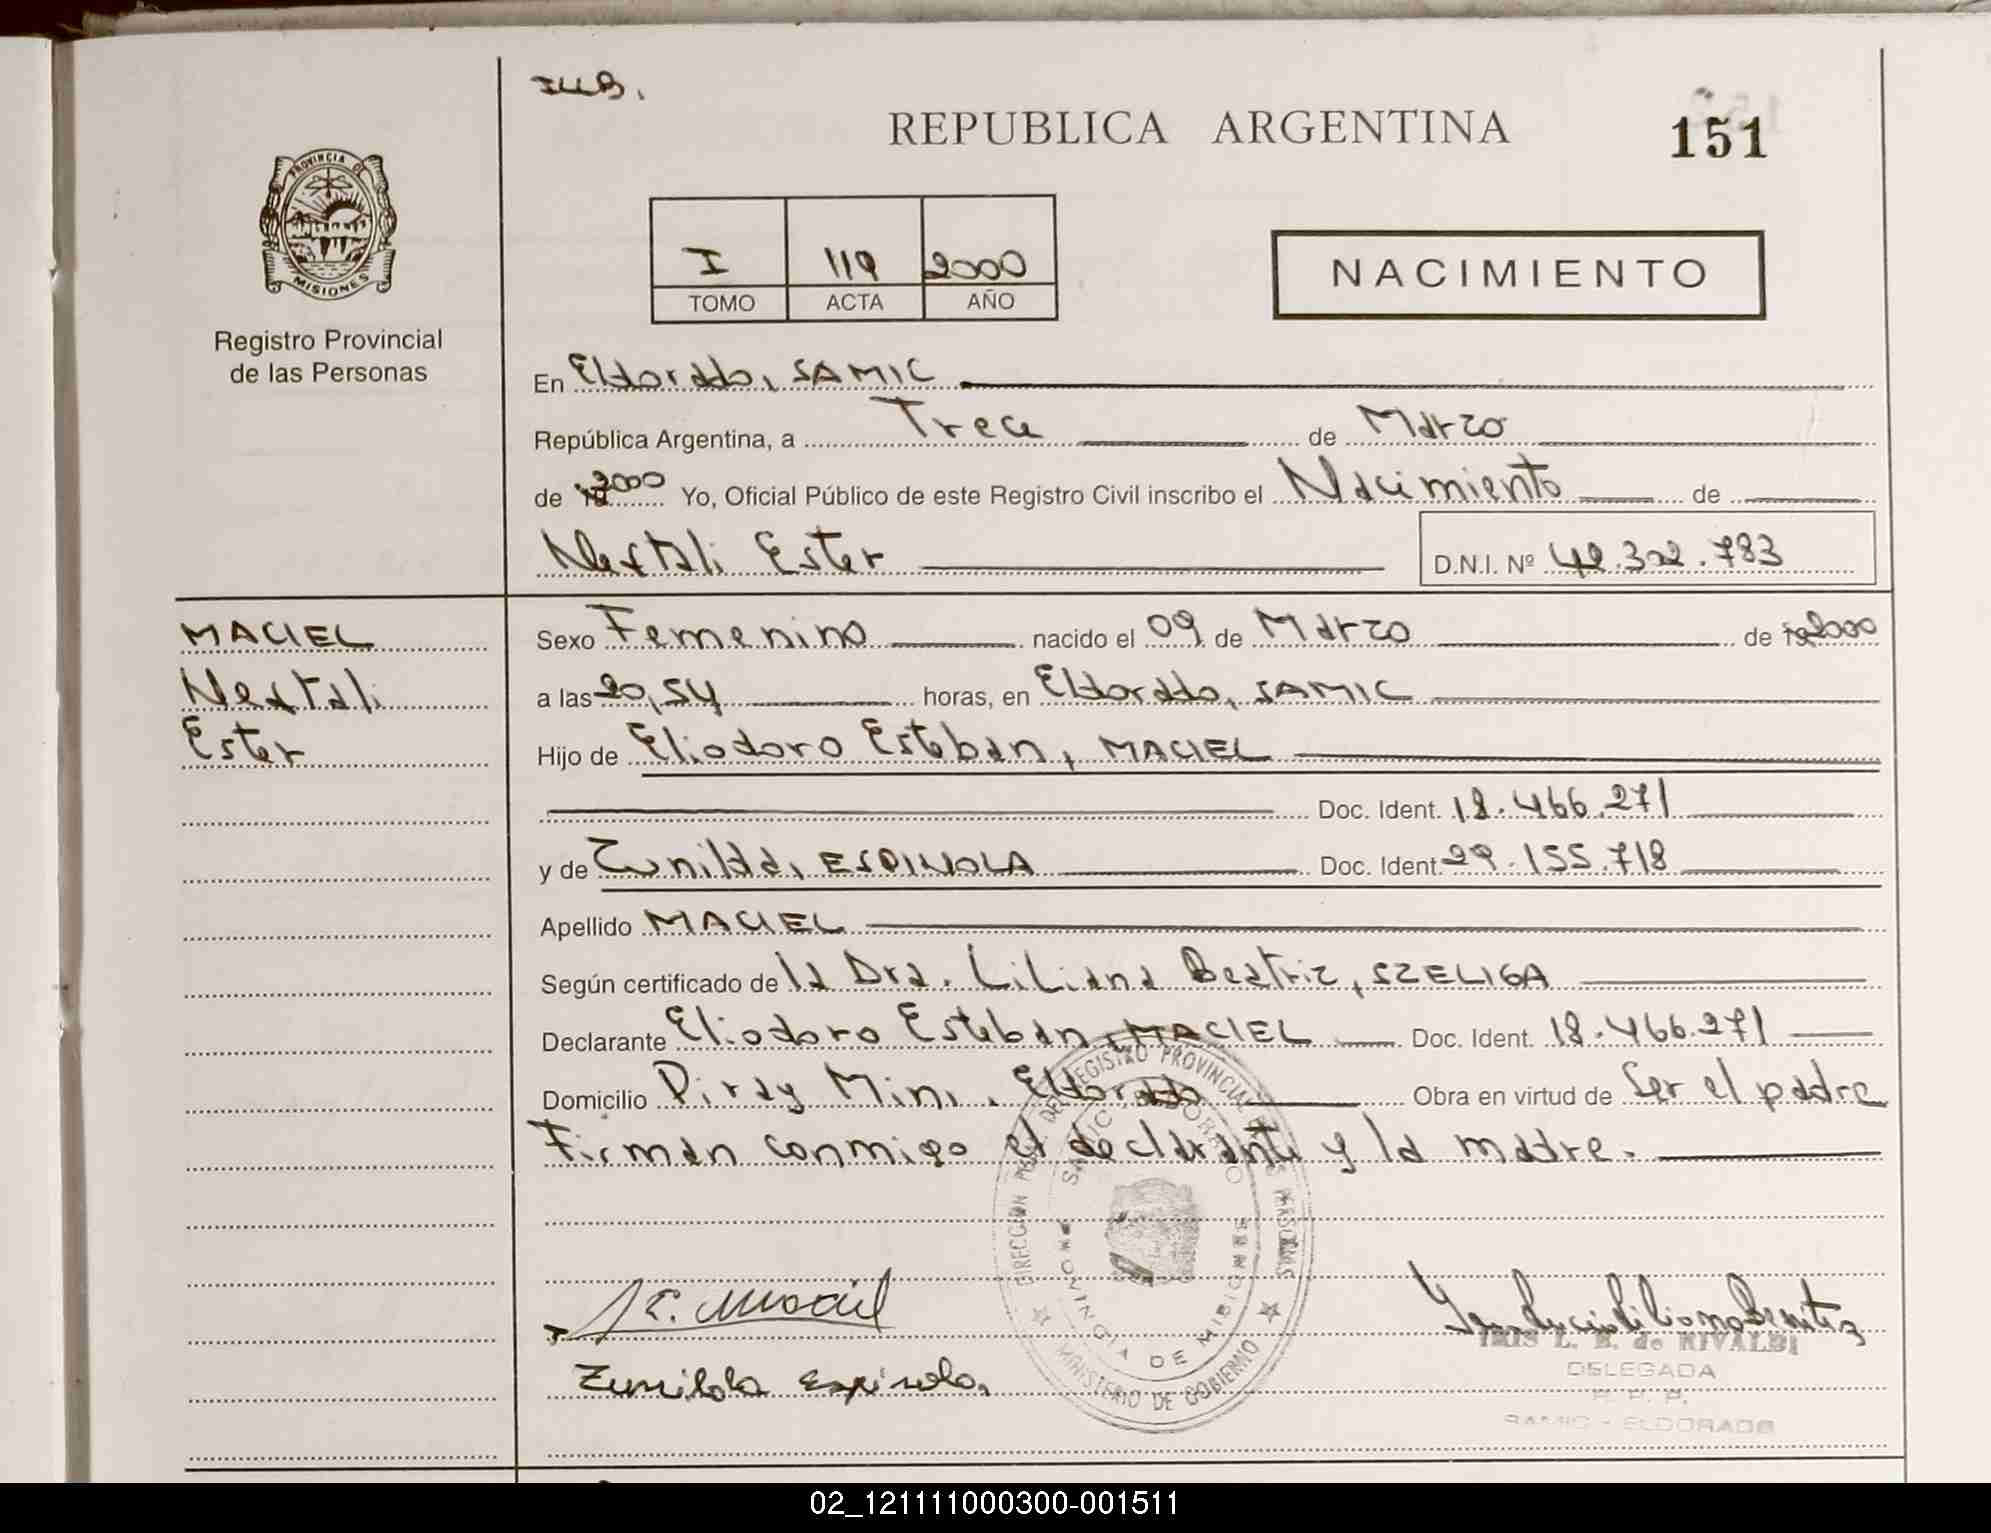 ILLB.
REPUBLICA ARGENTINA
151
PROVINCIA DE
MISIONES
I 119 2000
TOMO ACTA AÑO
NACIMIENTO
Registro Provincial
de las Personas
En Eldorado, SAMIC
República Argentina, a Trece de Marzo
de 2000 Yo, Oficial Público de este Registro Civil inscribo el Nacimiento de
Neftali Ester D.N.I. Nº 42.302.783
MACIEL
Neftali
Ester
Sexo Femenino nacido el 09 de Marzo de 19 2000
a las 20,54 horas, en Eldorado, SAMIC
Hijo de Eliodoro Esteban, MACIEL
Doc. Ident. 18.466.271
y de Zunilda, ESPINOLA Doc. Ident. 29.155.718
Apellido MACIEL
Según certificado de la Dra. Liliana Beatriz, SZELIGA
Declarante Eliodoro Esteban, MACIEL Doc. Ident. 18.466.271
Domicilio Piray Mini, Eldorado Obra en virtud de Ser el padre
Firman conmigo el declarante y la madre.
DIRECCION DEL REGISTRO PROVINCIAL DE LAS PERSONAS
SAMIC ELDORADO
PROVINCIA DE MISIONES
MINISTERIO DE GOBIERNO
E. Maciel
Zunilda Espinola.
IRIS L. B. de RIVALDI
DELEGADA
R. P. P.
SAMIC - ELDORADO
02_121111000300-001511